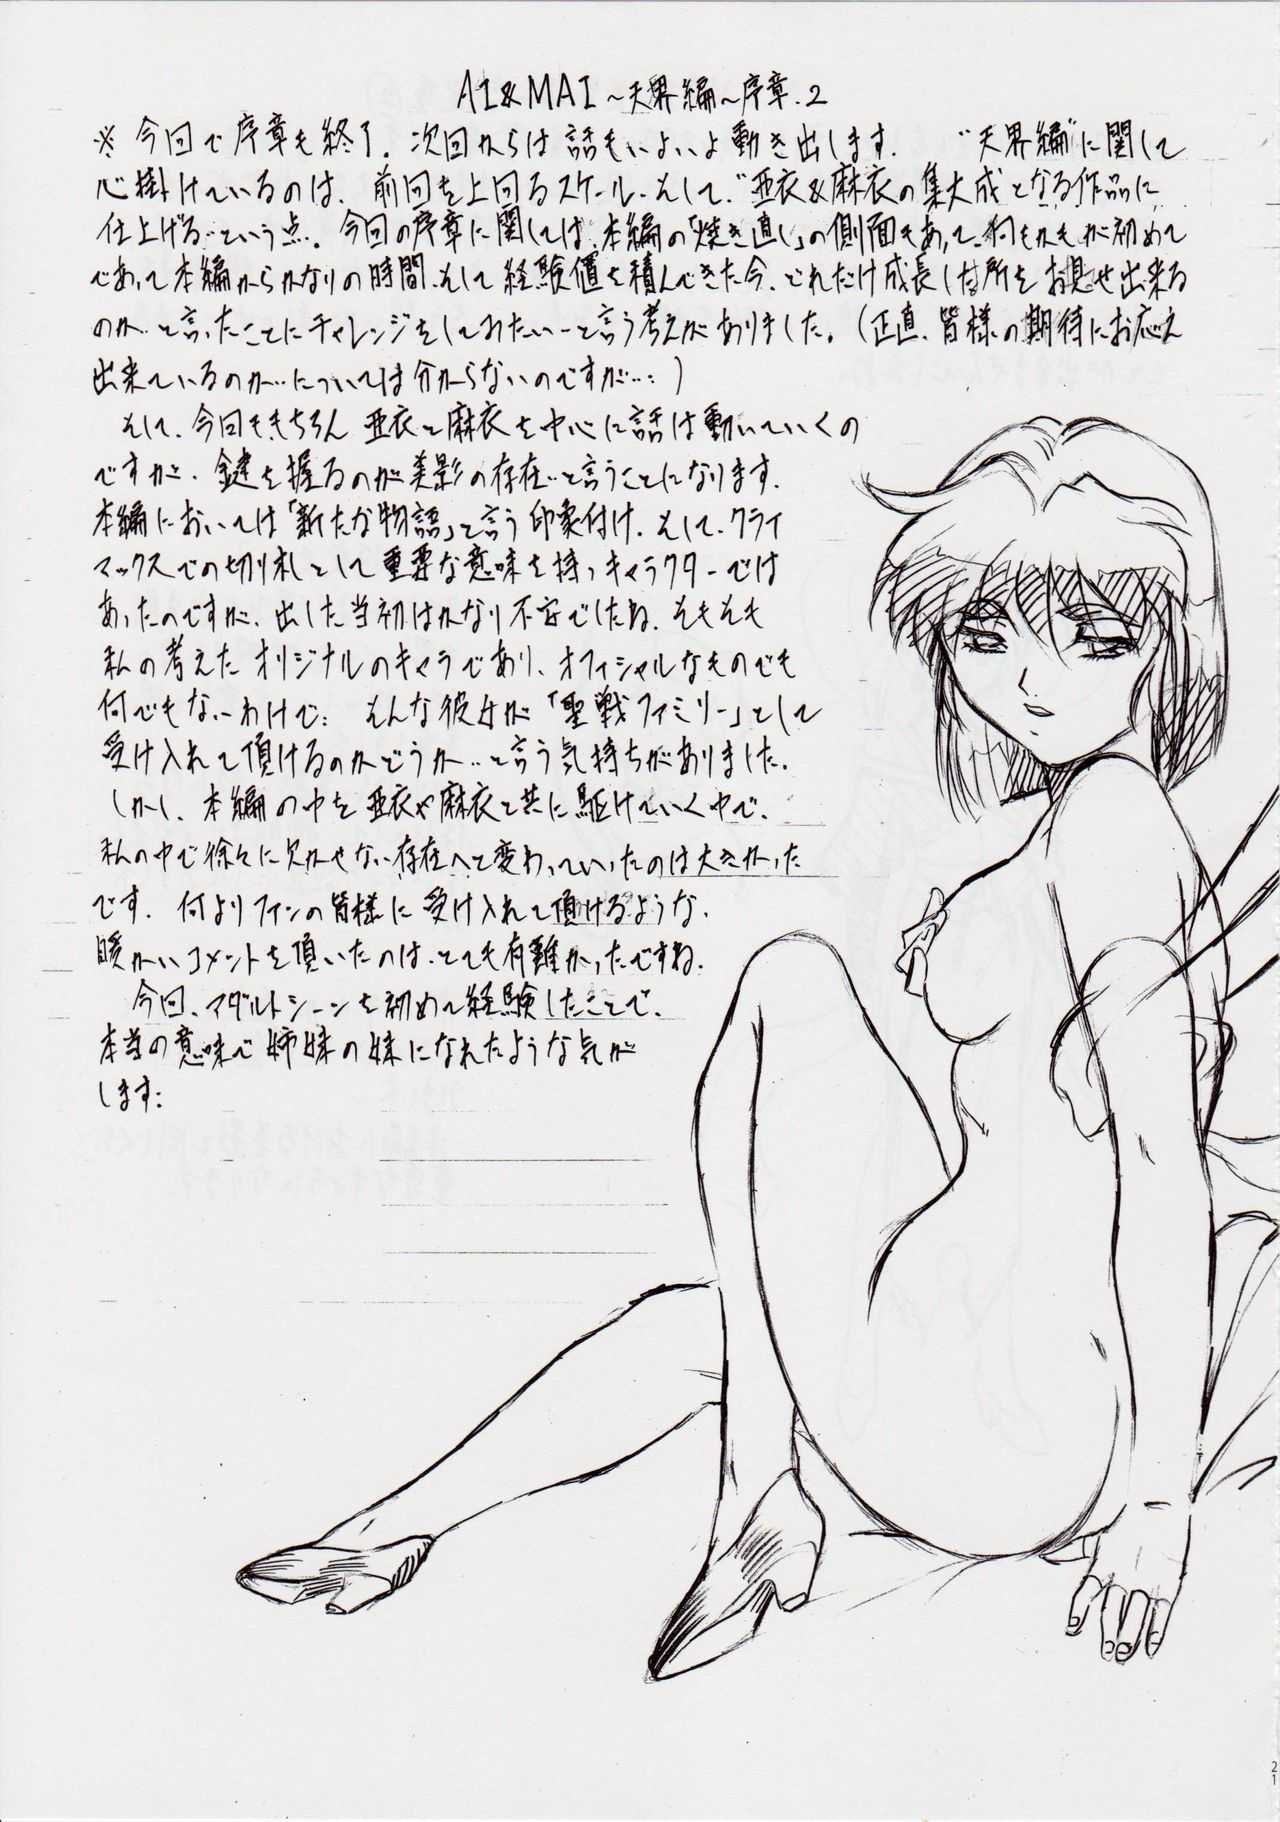 AI&MAI～天界編～序章.2
※今回で序章も終了。次回からは話もいよいよ動き出します。 "天界編"に関して
心掛けているのは、前回を上回るスケール、そして、"亜衣&麻衣の集大成となる作品に
仕上げる…という点。今回の序章に関しては、本編の「焼き直し」の側面もあって、何もかもが初めて
であって本編からかなりの時間、そして経験値を積んできた今、どれだけ成長した所をお見せ出来る
のか…と言ったことにチャレンジをしてみたい…と言う考えがありました。(正直、皆様の期待にお応え
出来ているのか…については分からないのですが…;)
そして、今回ももちろん亜衣と麻衣を中心に話は動いていくの
ですが、鍵を握るのが美影の存在…と言うことになります。
本編においては「新たな物語」と言う印象付け、そして、クライ
マックスでの切り札として重要な意味を持つキャラクターでは
あったのですが、出した当初はかなり不安でしたね。そもそも
私の考えたオリジナルのキャラであり、オフィシャルなものでも
何でもないわけで; そんな彼女が「聖戦ファミリー」として
受け入れて頂けるのかどうか…と言う気持ちがありました。
しかし、本編の中を亜衣や麻衣と共に駆けていく中で、
私の中で徐々に欠かせない存在へと変わっていったのは大きかった
です。何よりファンの皆様に受け入れて頂けるような、
暖かいコメントを頂いたのは、とても有難かったですね。
今回、アダルトシーンを初めて経験したことで、
本当の意味で姉妹の妹になれたような気が
します;
21